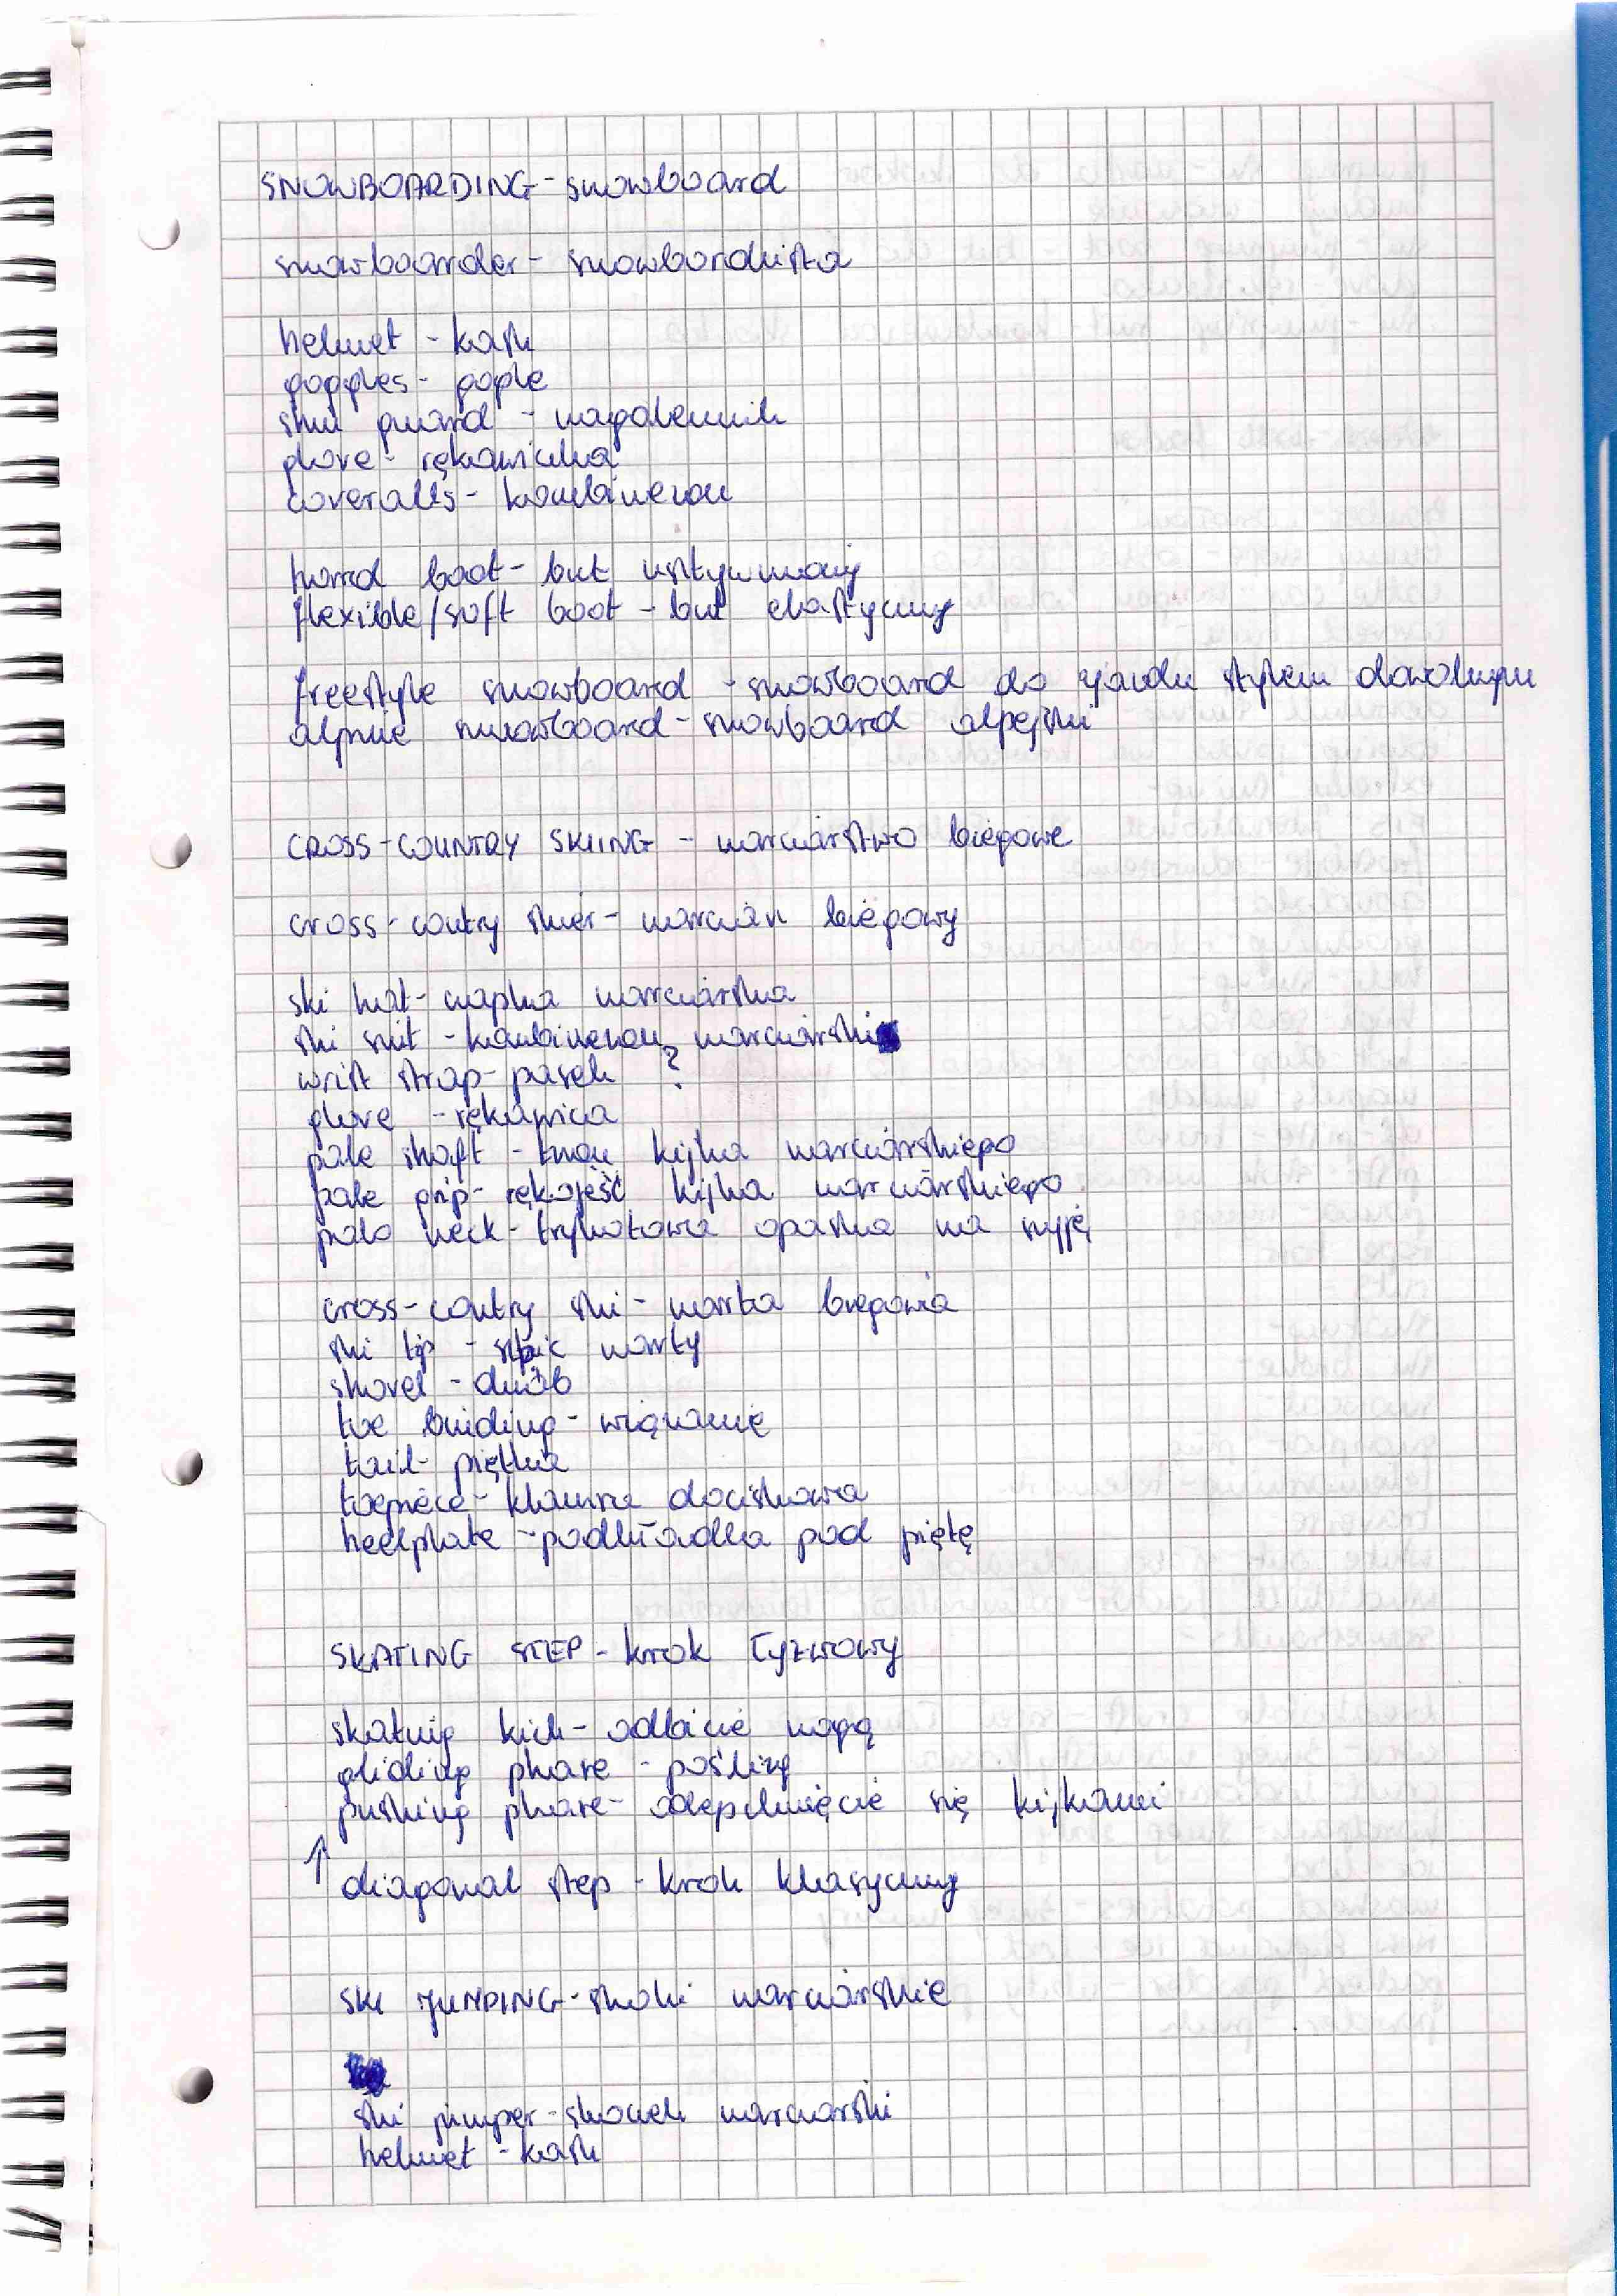 SNOWBOARDING - snowboard
snowboarder - snowbordzista
helmet - kask
goggles - gogle
shin guard - nagolennik
glove - rękawiczka
coveralls - kombinezon
hard boot - but usztywniany
flexible/soft boot - but elastyczny
freestyle snowboard - snowboard do zjazdu stylem dowolnym
alpnie snowboard - snowboard alpejski
CROSS-COUNTRY SKIING - narciarstwo biegowe
cross-coutry skier - narciarz biegowy
ski hat - czapka narciarska
ski suit - kombinezon narciarski
wrist strap - pasek ?
glove - rękawica
pole shaft - trzon kijka narciarskiego
pole grip - rękojeść kijka narciarskiego
polo neck - trykotowa opaska na szyję
cross-coutry ski - narta biegowa
ski tip - szpic narty
shovel - dziób
toe binding - wiązanie
tail - piętka
toepiece - klamra dociskowa
heelplate - podkładka pod piętę
SKATING STEP - krok łyżwowy
skating kick - odbicie nogą
gliding phase - poślizg
pushing phase - odepchnięcie się kijkami
↑ diagonal step - krok klasyczny
SKI JUMPING - skoki narciarskie
ski jumper - skoczek narciarski
helmet - kask